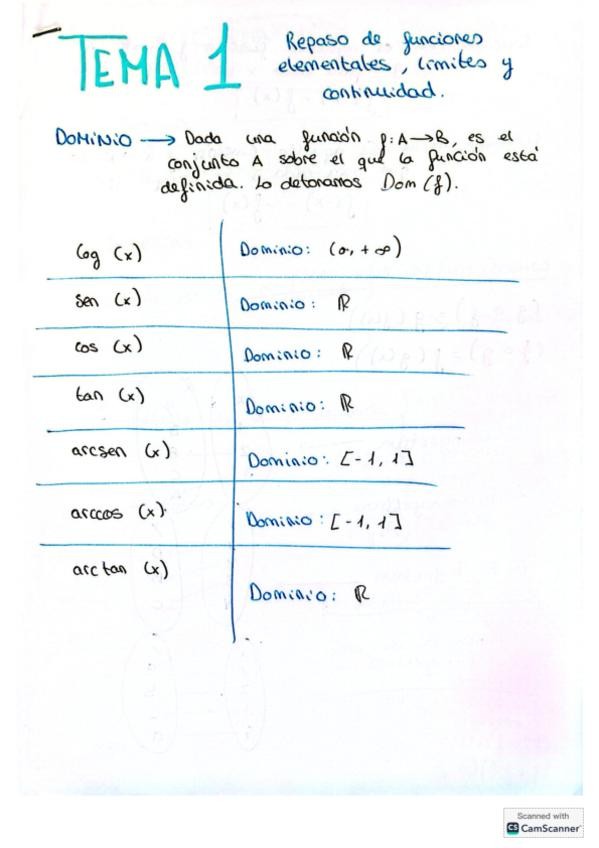 TEMA 1
Repaso de funciones
elementales, límites y
continuidad.
DOMINIO → Dada una función f: A→B, es el
conjunto A sobre el que la función está
definida. Lo detonamos Dom (f).
log (x) Dominio: (0, +∞)
sen (x) Dominio: ℝ
cos (x) Dominio: ℝ
tan (x) Dominio: ℝ
arcsen (x) Dominio: [-1, 1]
arccos (x). Dominio: [-1, 1]
arctan (x) Dominio: ℝ
Scanned with
CS CamScanner